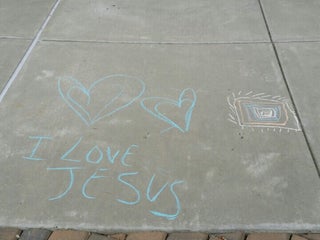 I LOVE
JESUS